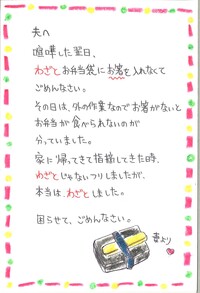 夫へ
喧嘩した翌日、
わざとお弁当袋にお箸を入れなくて
ごめんなさい。
その日は、外の作業なのでお箸がないと
お弁当が食べられないのが
分っていました。
家に帰ってきて指摘してきた時、
わざとじゃないフリしましたが、
本当は、わざとしました。
困らせて、ごめんなさい。
妻より